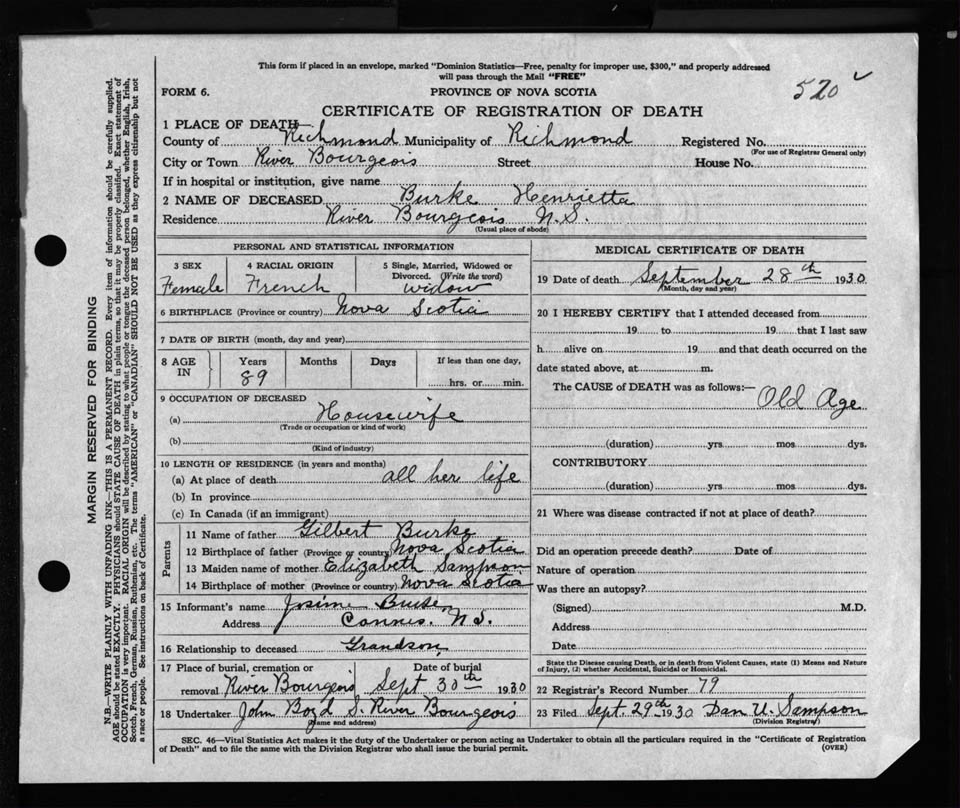 This form if placed in an envelope, marked "Dominion Statistics—Free, penalty for improper use, $300," and properly addressed
will pass through the Mail "FREE"
520
FORM 6.
PROVINCE OF NOVA SCOTIA
CERTIFICATE OF REGISTRATION OF DEATH
1 PLACE OF DEATH
County of Richmond Municipality of Richmond Registered No.
(For use of Registrar General only)
City or Town River Bourgeois Street House No.
If in hospital or institution, give name
2 NAME OF DECEASED Burke Henrietta
Residence River Bourgeois N.S.
(Usual place of abode)
PERSONAL AND STATISTICAL INFORMATION
3 SEX 4 RACIAL ORIGIN 5 Single, Married, Widowed or
Divorced. (Write the word)
Female French widow
6 BIRTHPLACE (Province or country) Nova Scotia
7 DATE OF BIRTH (month, day and year)
8 AGE IN Years Months Days If less than one day,
89 hrs. or min.
9 OCCUPATION OF DECEASED
(a) Housewife
(Trade or occupation or kind of work)
(b)
(Kind of industry)
10 LENGTH OF RESIDENCE (in years and months)
(a) At place of death all her life
(b) In province
(c) In Canada (if an immigrant)
Parents
11 Name of father Gilbert Burke
12 Birthplace of father (Province or country) Nova Scotia
13 Maiden name of mother Elizabeth Sampson
14 Birthplace of mother (Province or country) Nova Scotia
15 Informant's name Burke
Address Cannes. N.S.
16 Relationship to deceased Grandson
17 Place of burial, cremation or Date of burial
removal River Bourgeois Sept 30th 1930
18 Undertaker John Boyd S. River Bourgeois
(Name and address)
MEDICAL CERTIFICATE OF DEATH
19 Date of death September 28th 1930
(Month, day and year)
20 I HEREBY CERTIFY that I attended deceased from
19 to 19 that I last saw
h alive on 19 and that death occurred on the
date stated above, at m.
The CAUSE of DEATH was as follows:—
Old Age
(duration) yrs. mos. dys.
CONTRIBUTORY
(duration) yrs. mos. dys.
21 Where was disease contracted if not at place of death?
Did an operation precede death? Date of
Nature of operation
Was there an autopsy?
(Signed) M.D.
Address
Date
State the Disease causing Death, or in death from Violent Causes, state (1) Means and Nature
of Injury, (2) whether Accidental, Suicidal or Homicidal.
22 Registrar's Record Number 79
23 Filed Sept. 29th 1930 Dan U. Sampson
(Division Registrar)
SEC. 46—Vital Statistics Act makes it the duty of the Undertaker or person acting as Undertaker to obtain all the particulars required in the "Certificate of Registration
of Death" and to file the same with the Division Registrar who shall issue the burial permit.
(OVER)
MARGIN RESERVED FOR BINDING
N.B.—WRITE PLAINLY WITH UNFADING INK—THIS IS A PERMANENT RECORD. Every item of information should be carefully supplied.
AGE should be stated EXACTLY. PHYSICIANS should STATE CAUSE OF DEATH in plain terms, so that it may be properly classified. Exact statement of
OCCUPATION is very important. RACIAL ORIGIN will be described by stating to what people or tongue the deceased person belonged, whether English, Irish,
Scotch, French, German, Russian, Ruthenian, etc. The terms "AMERICAN" or "CANADIAN" SHOULD NOT BE USED as they express citizenship but not
a race or people. See instructions on back of Certificate.